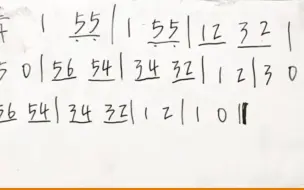 4 1 55 | 1 55 | 12 32 |
5 0 | 56 54 | 34 32 | 1 2 | 3 0
56 54 | 34 32 | 1 2 | 1 0 ||